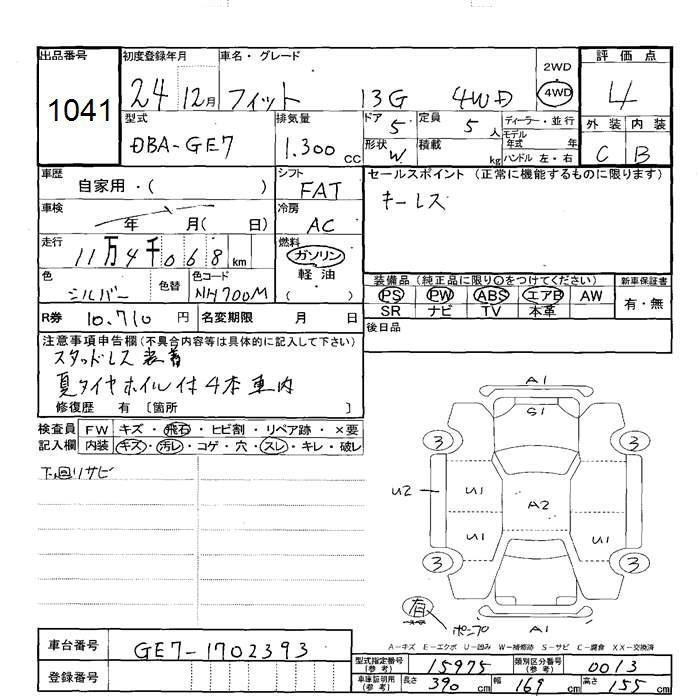 出品番号 1041
初度登録年月 24 12月
車名・グレード フィット 13G 4WD
2WD 4WD
評価点 4
型式 DBA-GE7
排気量 1.300 cc
ドア 5
定員 5 人
ディーラー・並行
モデル年式 年
ハンドル 左・右
形状 W
積載 kg
外装 内装
C B
車歴 自家用・( )
シフト FAT
セールスポイント (正常に機能するものに限ります)
キーレス
車検 年 月( 日)
冷房 AC
走行 11万4千068 km
燃料 ガソリン
軽油
( )
色 シルバー 色替
色コード NH700M
装備品 (純正品に限り○をつけてください)
PS PW ABS エアB AW
SR ナビ TV 本革
新車保証書
有・無
R券 10.710 円
名変期限 月 日
後日品
注意事項申告欄(不具合内容等は具体的に記入して下さい)
スタッドレス 装着
夏タイヤホイル付4本車内
修復歴 有 [箇所 ]
検査員記入欄
FW キズ・飛石・ヒビ割・リペア跡・×要
内装 キズ・汚レ・コゲ・穴・スレ・キレ・破レ
下回リサビ
A1
S1
3 3
U2 U1 A2 U1
U1 U1
3 3
有
ポンプ A1
A-キズ E-エクボ U-凹み W-補修跡 S-サビ C-腐食 XX-交換済
車台番号 GE7-1702393
登録番号
型式指定番号(参考) 15975
類別区分番号(参考) 0013
車庫証明用(参考) 長さ 390 cm 幅 169 cm 高さ 155 cm